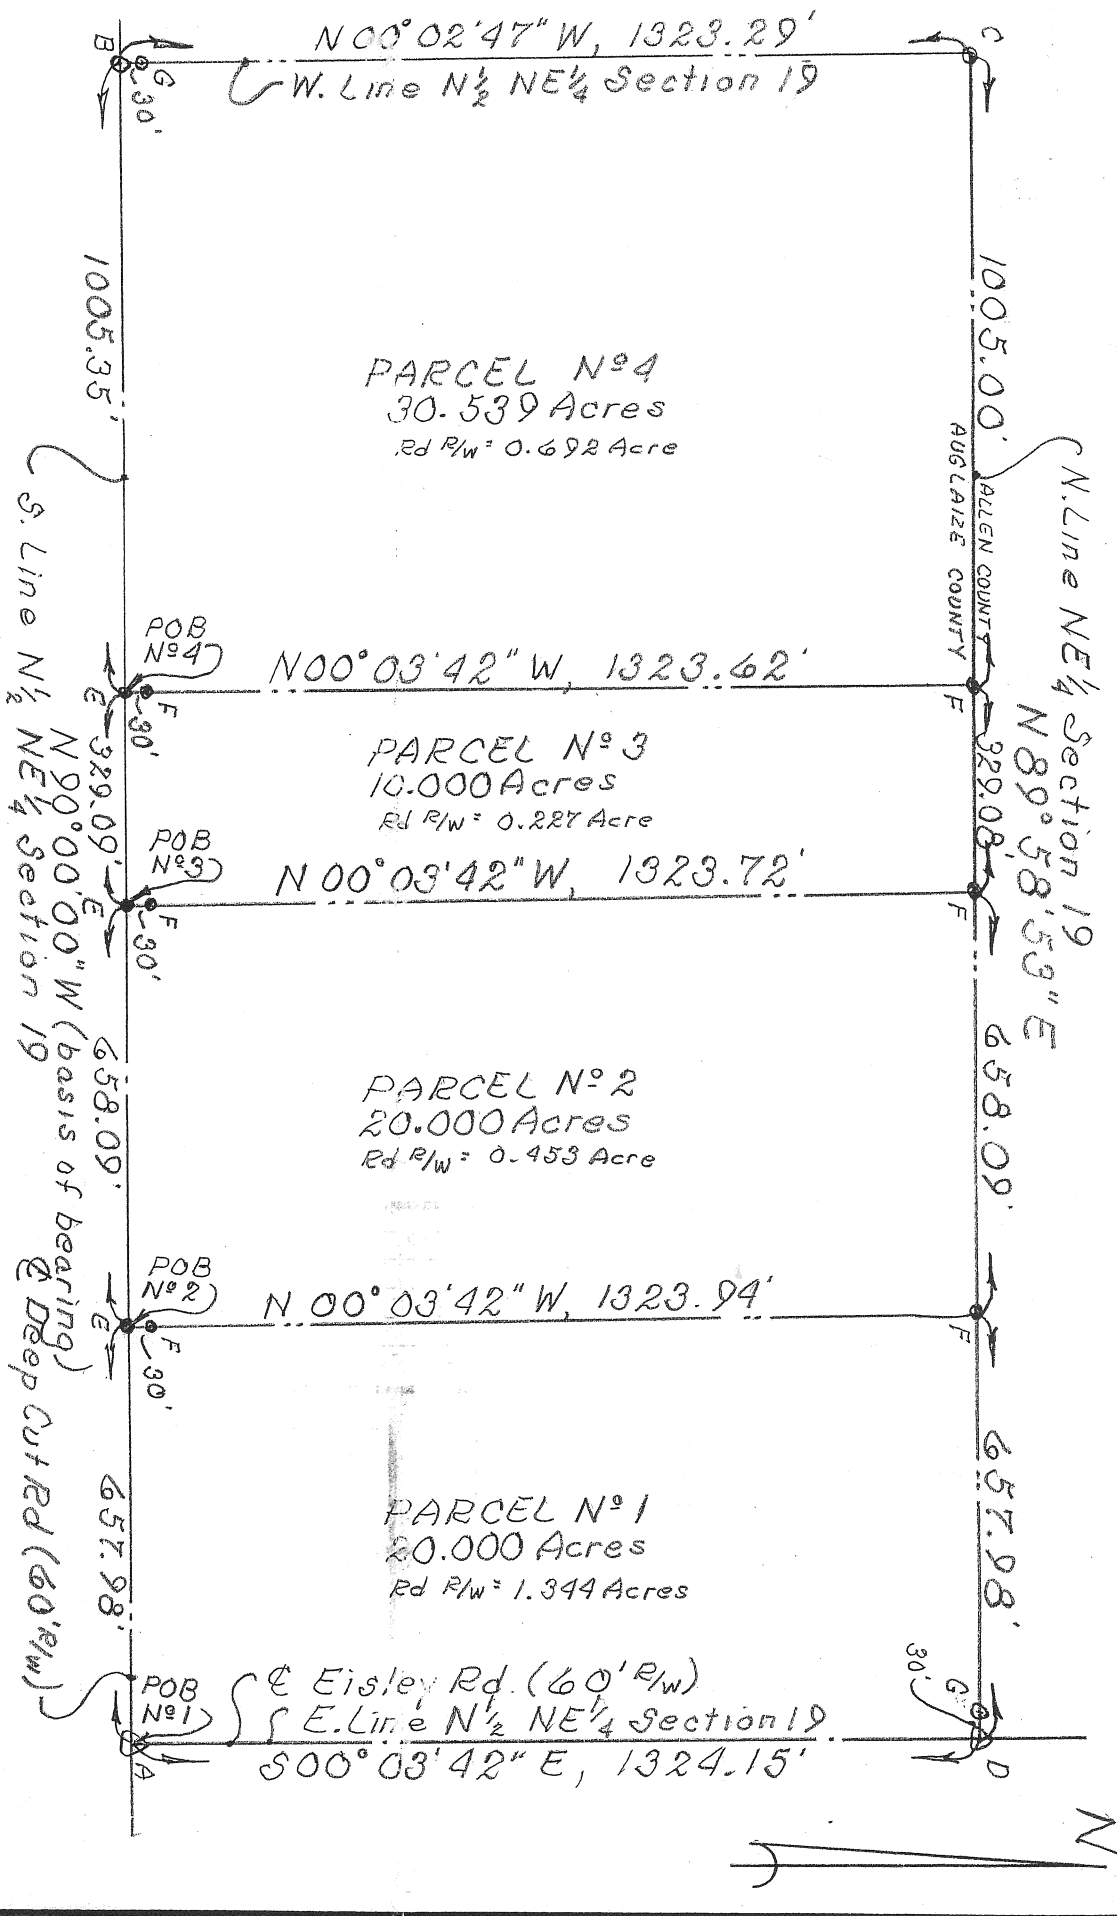 N 00° 02' 47" W, 1323.29'
W. Line N½ NE¼ Section 19
B
G
30'
C
1005.35'
1005.00'
PARCEL Nº 4
30.539 Acres
Rd R/W = 0.692 Acre
N. Line NE¼ Section 19
N 89° 58' 53" E
ALLEN COUNTY
AUGLAIZE COUNTY
S. Line N½ NE¼ Section 19
N 90° 00' 00" W (basis of bearing)
POB
Nº 4
N 00° 03' 42" W, 1323.62'
E
F
30'
F
329.09'
329.08'
PARCEL Nº 3
10.000 Acres
Rd R/W = 0.227 Acre
POB
Nº 3
N 00° 03' 42" W, 1323.72'
E
F
30'
F
658.09'
658.09'
PARCEL Nº 2
20.000 Acres
Rd R/W = 0.453 Acre
POB
Nº 2
N 00° 03' 42" W, 1323.94'
E
F
30'
F
℄ Deep Cut Rd (60' R/W)
657.98'
657.98'
PARCEL Nº 1
20.000 Acres
Rd R/W = 1.344 Acres
POB
Nº 1
℄ Eisley Rd. (60' R/W)
E. Line N½ NE¼ Section 19
S 00° 03' 42" E, 1324.15'
30'
G
A
D
N